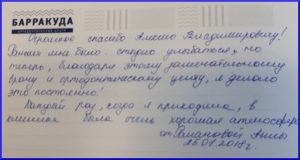 БАРРАКУДА
ОРТОДОНТИЧЕСКИЙ ЦЕНТР
Огромное спасибо Алексею Владимировичу!
Раньше мне было стыдно улыбаться, но
теперь, благодаря этому замечательному
врачу и ортодонтическому центру, я делаю
это постоянно!
Каждый раз, когда я приходила, в
клинике была очень хорошая атмосфера
от Ани
25.01.2018г.